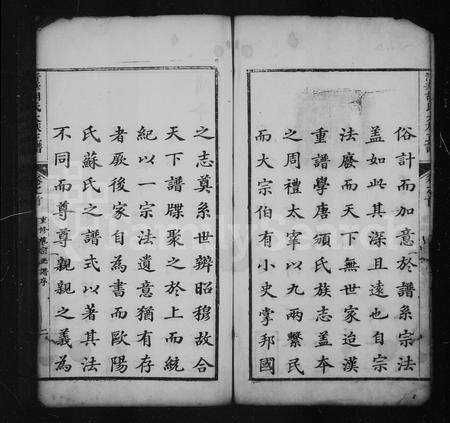 俗計而加意於譜系宗法
蓋如此其深且遠也自宗
法廢而天下無世家迨漢
重譜學唐頒氏族志蓋本
之周禮太宰以九兩繫民
而大宗伯有小史掌邦國
之志奠系世辨昭穆故合
天下譜牒聚之於上而統
紀以一宗法遺意猶有存
者厥後家自為書而歐陽
氏蘇氏之譜式以著其法
不同而尊尊親親之義為